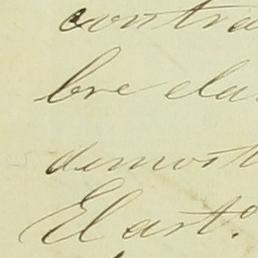 contra
bre ela
demost
El art.º